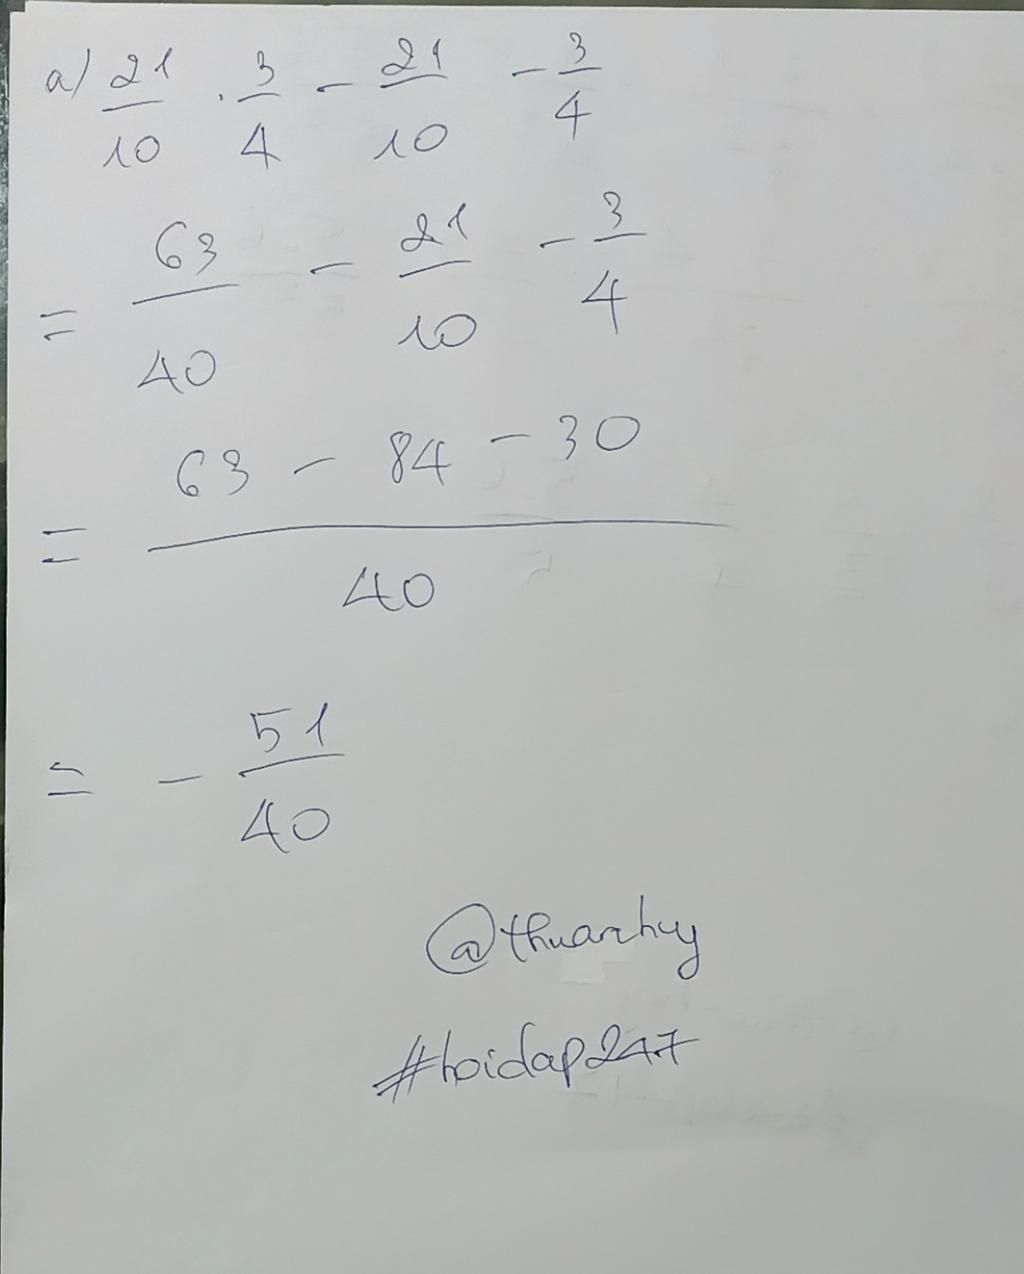 a) 21/10 . 3/4 - 21/10 - 3/4
= 63/40 - 21/10 - 3/4
= (63 - 84 - 30)/40
= - 51/40
@thuanhuy
#hoidap247